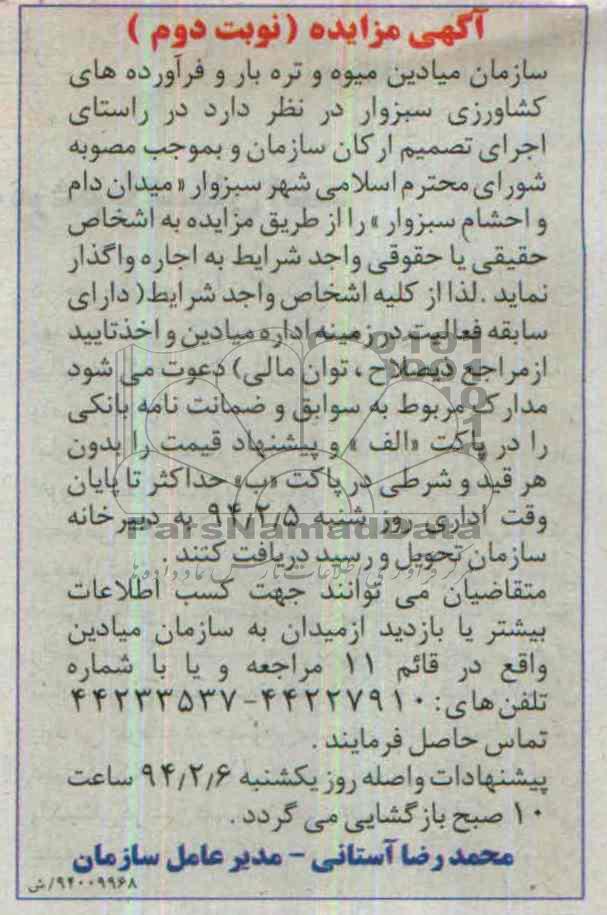 آگهی مزایده (نوبت دوم )
سازمان میادین میوه و تره بار و فرآورده های
کشاورزی سبزوار در نظر دارد در راستای
اجرای تصمیم ارکان سازمان و بموجب مصوبه
شورای محترم اسلامی شهر سبزوار «میدان دام
و احشام سبزوار» را از طریق مزایده به اشخاص
حقیقی یا حقوقی واجد شرایط به اجاره واگذار
نماید .لذا از کلیه اشخاص واجد شرایط( دارای
سابقه فعالیت در زمینه اداره میادین و اخذتایید
ازمراجع ذیصلاح ، توان مالی) دعوت می شود
مدارک مربوط به سوابق و ضمانت نامه بانکی
را در پاکت «الف » و پیشنهاد قیمت را بدون
هر قید و شرطی در پاکت «ب» حداکثر تا پایان
وقت اداری روز شنبه ۹۴/۲/۵ به دبیرخانه
ParsNamadData
سازمان تحویل و رسید دریافت کنند .
متقاضیان می توانند جهت کسب اطلاعات
بیشتر یا بازدید ازمیدان به سازمان میادین
واقع در قائم ۱۱ مراجعه و یا با شماره
تلفن های: ۴۴۲۲۷۹۱۰-۴۴۲۳۳۵۳۷
تماس حاصل فرمایند .
پیشنهادات واصله روز یکشنبه ۹۴/۲/۶ ساعت
۱۰ صبح بازگشایی می گردد .
محمد رضا آستانی - مدیر عامل سازمان
۹۴۰۰۹۹۶۸/ش